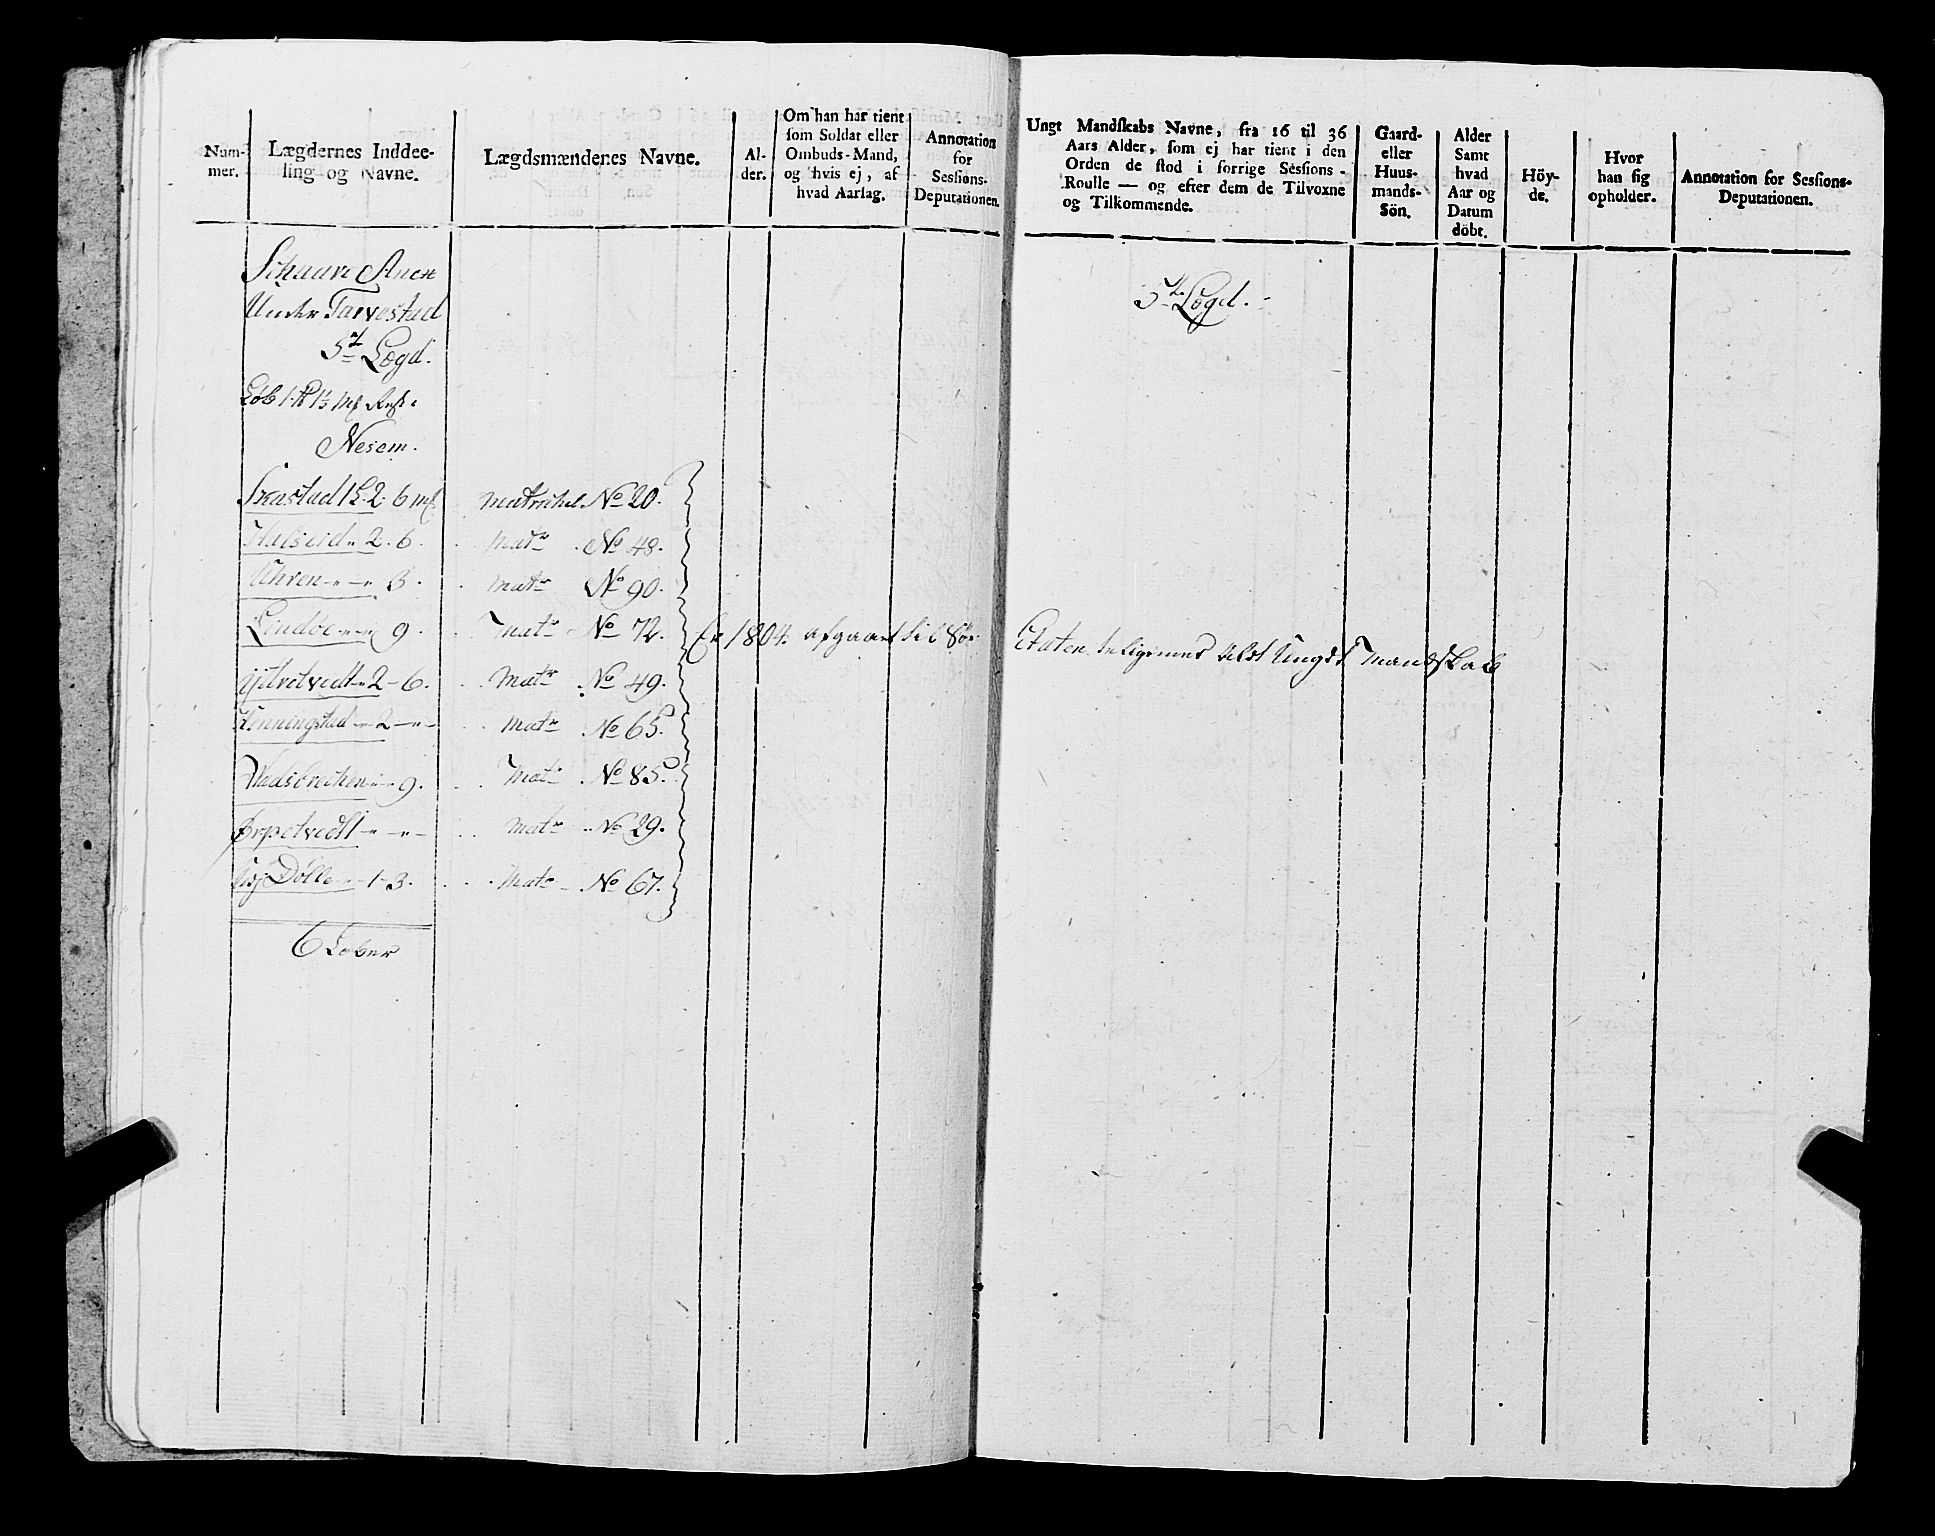 Num-
mer.
Lægdernes Inddee-
ling og Navne.
Lægdsmændenes Navne.
Al-
der.
Om han har tient
som Soldat eller
Ombuds-Mand,
og hvis ej, af
hvad Aarsag.
Annotation
for
Sessions-
Deputationen.
Schaare
Under Torvestad
5te Lægd.
Løb 1
Nesem.
2. 6 mk matrichel No 20.
2. 6. matr No 48.
Uhren 3. matr No 90.
Lindøe 9. matr No 72.
2 - 6. matr No 49.
Henningstad 2 matr No 65.
9. matr No 85.
matr No 29.
1 - 3. matr No 67.
6 Løber
Er 1804 afgaaet til Söe
Ungt Mandskabs Navne, fra 16 til 36
Aars Alder, som ej har tient i den
Orden de stod i forrige Sessions-
Roulle — og efter dem de Tilvoxne
og Tilkommende.
Gaard-
eller
Huus-
mands-
Sön.
Alder
Samt
hvad
Aar og
Datum
döbt.
Höy-
de.
Hvor
han sig
opholder.
Annotation for Sessions-
Deputationen.
5te Lægd.
Etaten tilligemed det Ungdt Mandskab